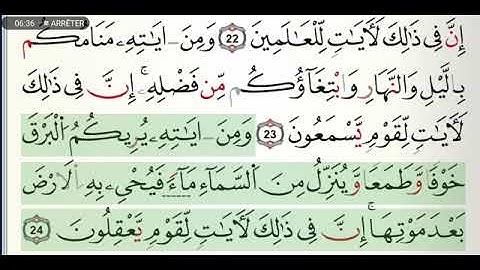 06:36 # ARRÊTER
إِنَّ فِي ذَٰلِكَ لَأٓيَاتٖ لِّلْعَالَمِينَ 22 وَمِنَ ـ ايَاتِهِۦ مَنَامُكُم
بِالَّيْلِ وَالنَّهَارِ وَابْتِغَآؤُكُم مِّن فَضْلِهِۦٓۚ إِنَّ فِي ذَٰلِكَ
لَأٓيَاتٖ لِّقَوْمٖ يَسْمَعُونَ 23 وَمِنَ ـ ايَاتِهِۦ يُرِيكُمُ اُ۬لْبَرْقَ
خَوْفاٗ وَطَمَعاٗ وَيُنَزِّلُ مِنَ اَ۬لسَّمَآءِ مَآءٗ فَيُحْيِۦ بِهِ اِ۬لَارْضَ
بَعْدَ مَوْتِهَآۚ إِنَّ فِي ذَٰلِكَ لَأٓيَاتٖ لِّقَوْمٖ يَعْقِلُونَ 24